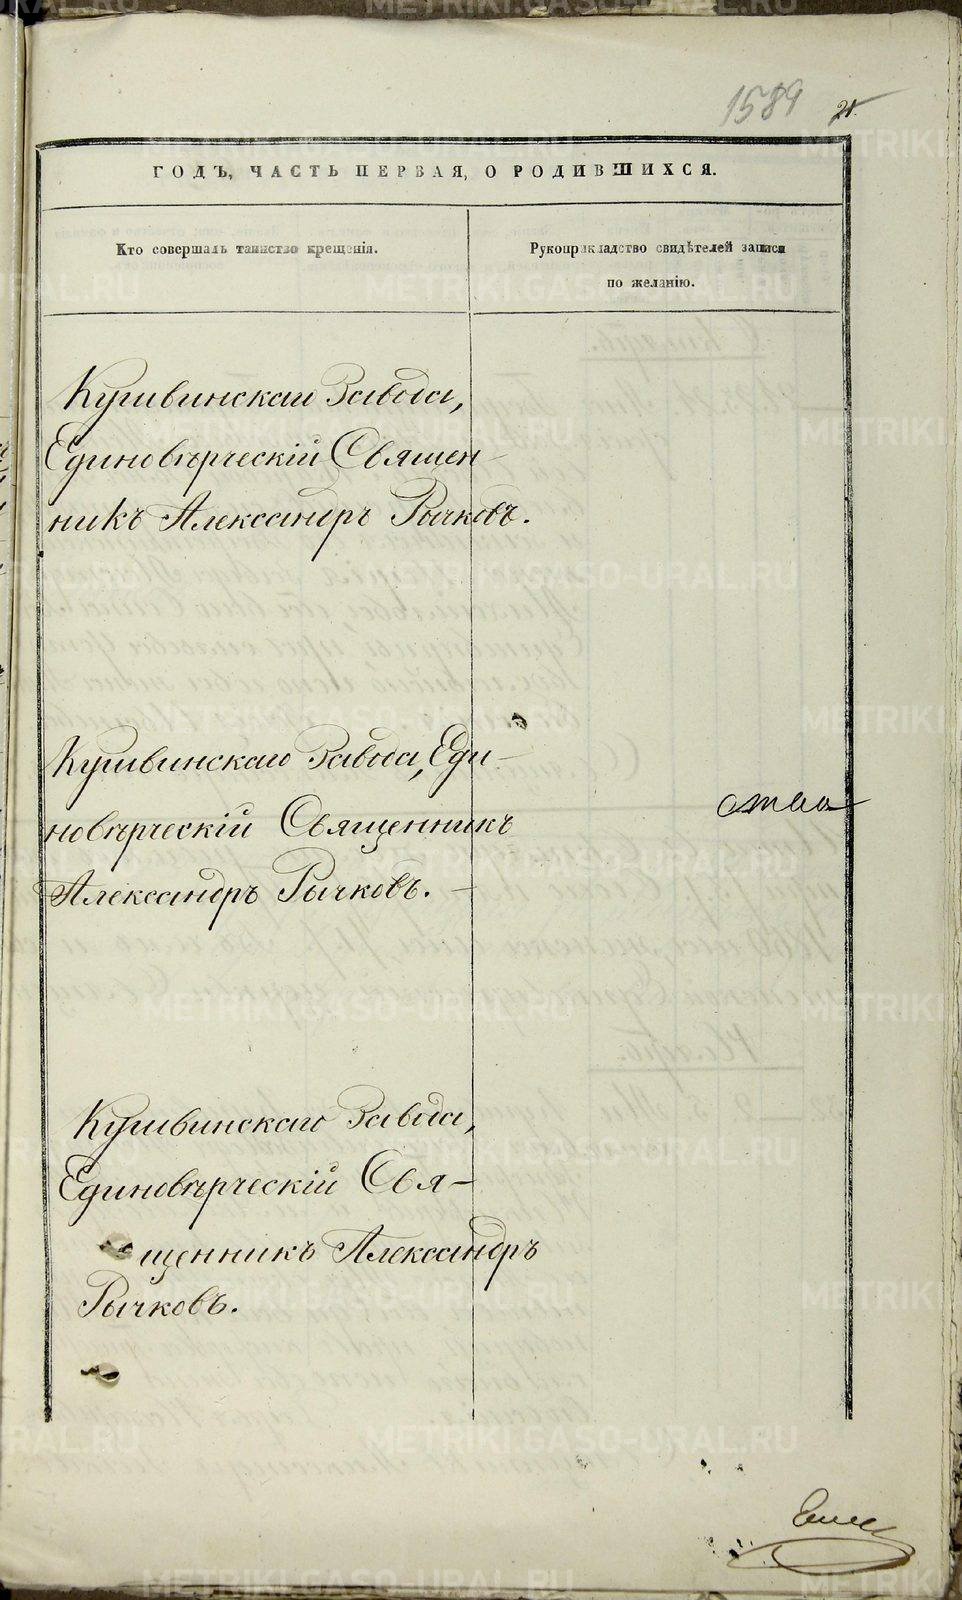 1589 21.
ГОДЪ, ЧАСТЬ ПЕРВАЯ, О РОДИВШИХСЯ.
Кто совершалъ таинство крещенія.
Рукоприкладство свидѣтелей записи
по желанію.
Кушвинскаго Завода,
Единовѣрческій Священ-
никъ Александръ Рычковъ.
Кушвинскаго Завода, Еди-
новѣрческій Священникъ
Александръ Рычковъ. —
Кушвинскаго Завода,
Единовѣрческій Свя-
щенникъ Александръ
Рычковъ.
METRIKI.GASO-URAL.RU